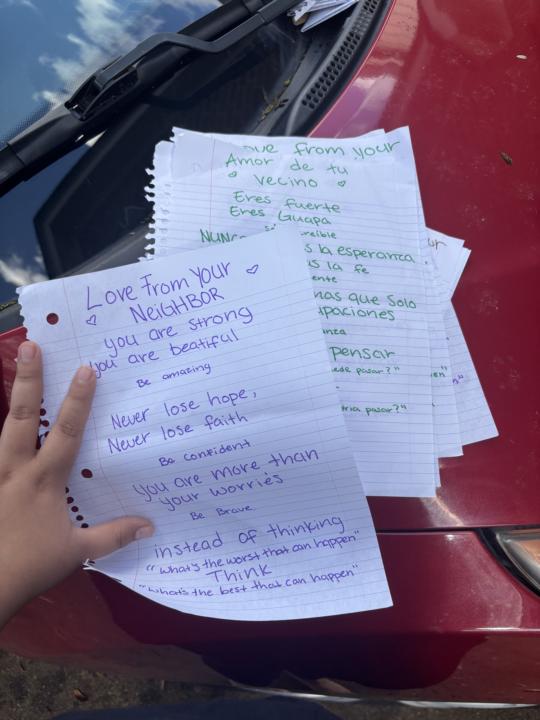 Love From Your
NeiGHBOR
you are strong
you are beatiful
Be amazing
Never lose hope,
Never lose faith
Be confident
you are more than
your worries
Be Brave
instead of thinking
"what's the worst that can happen"
Think
"whats the best that can happen"
from your
Amor de tu
Vecino
Eres fuerte
Eres Guapa
la esperanza
la fe
mas que Solo
pensar
pasar?"
pasar?"